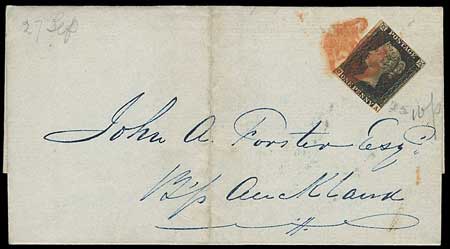 27 Sep
POSTAGE
ONE PENNY
John A. Forster Esqr.
B'p Auckland